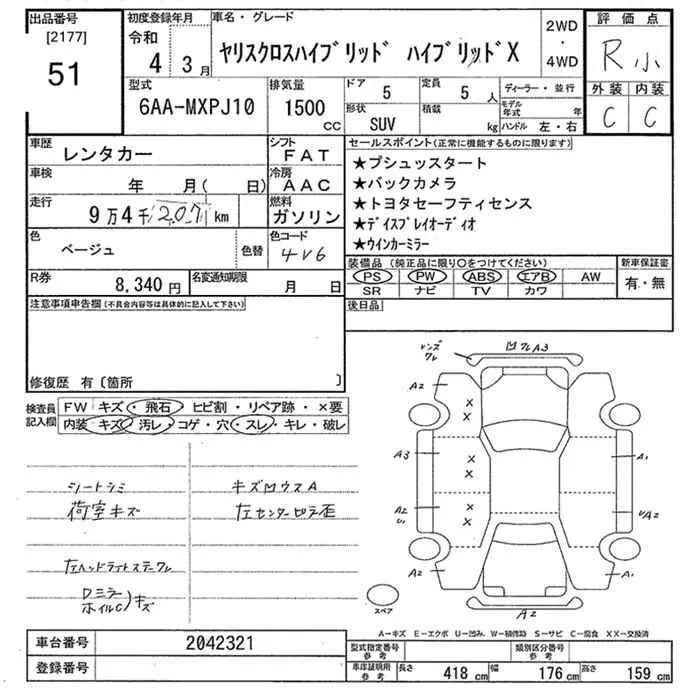 出品番号
[2177]
51
初度登録年月
令和
4年 3月
車名・グレード
ヤリスクロスハイブリッド ハイブリッドX
2WD
・
4WD
評価点
R 小
外装 内装
C C
型式
6AA-MXPJ10
排気量
1500
CC
ドア 5
定員 5 人
形状
SUV
積載
kg
ディーラー・並行
モデル年式 年
ハンドル 左・右
車歴
レンタカー
シフト
FAT
車検
年 月( 日)
冷房
AAC
走行
9万4千207km
燃料
ガソリン
色
ベージュ
色替
色コード
4V6
R券
8,340円
名変通知期限
月 日
セールスポイント(正常に機能するものに限ります)
★プシュッスタート
★バックカメラ
★トヨタセーフティセンス
★ディスプレイオーディオ
★ウインカーミラー
装備品 (純正品に限り○をつけてください)
PS PW ABS エアB AW
SR ナビ TV カワ
新車保証書
有・無
後日品
注意事項申告欄(不具合内容等は具体的に記入して下さい)
修復歴 有〔箇所 〕
検査員
記入欄
FW キズ・飛石・ヒビ割・リペア跡・×要
内装・キズ・汚レ・コゲ・穴・スレ・キレ・破レ
シートシミ
荷室キズ
キズ凹ウスA
左センターピラ歪
左ヘッドライトステーワレ
Dミラー
ホイルC
キズ
レンズ
ワレ
A3
A2
A3
A1
A2
A2
A2
A1
A2
スペア
A-キズ E-エクボ U-凹み, W-補修跡 S-サビ C-腐食 XX-交換済
車台番号
2042321
登録番号
型式指定番号
参考
類別区分番号
参考
車庫証明用
参考
長さ 418 cm
幅 176 cm
高さ 159 cm